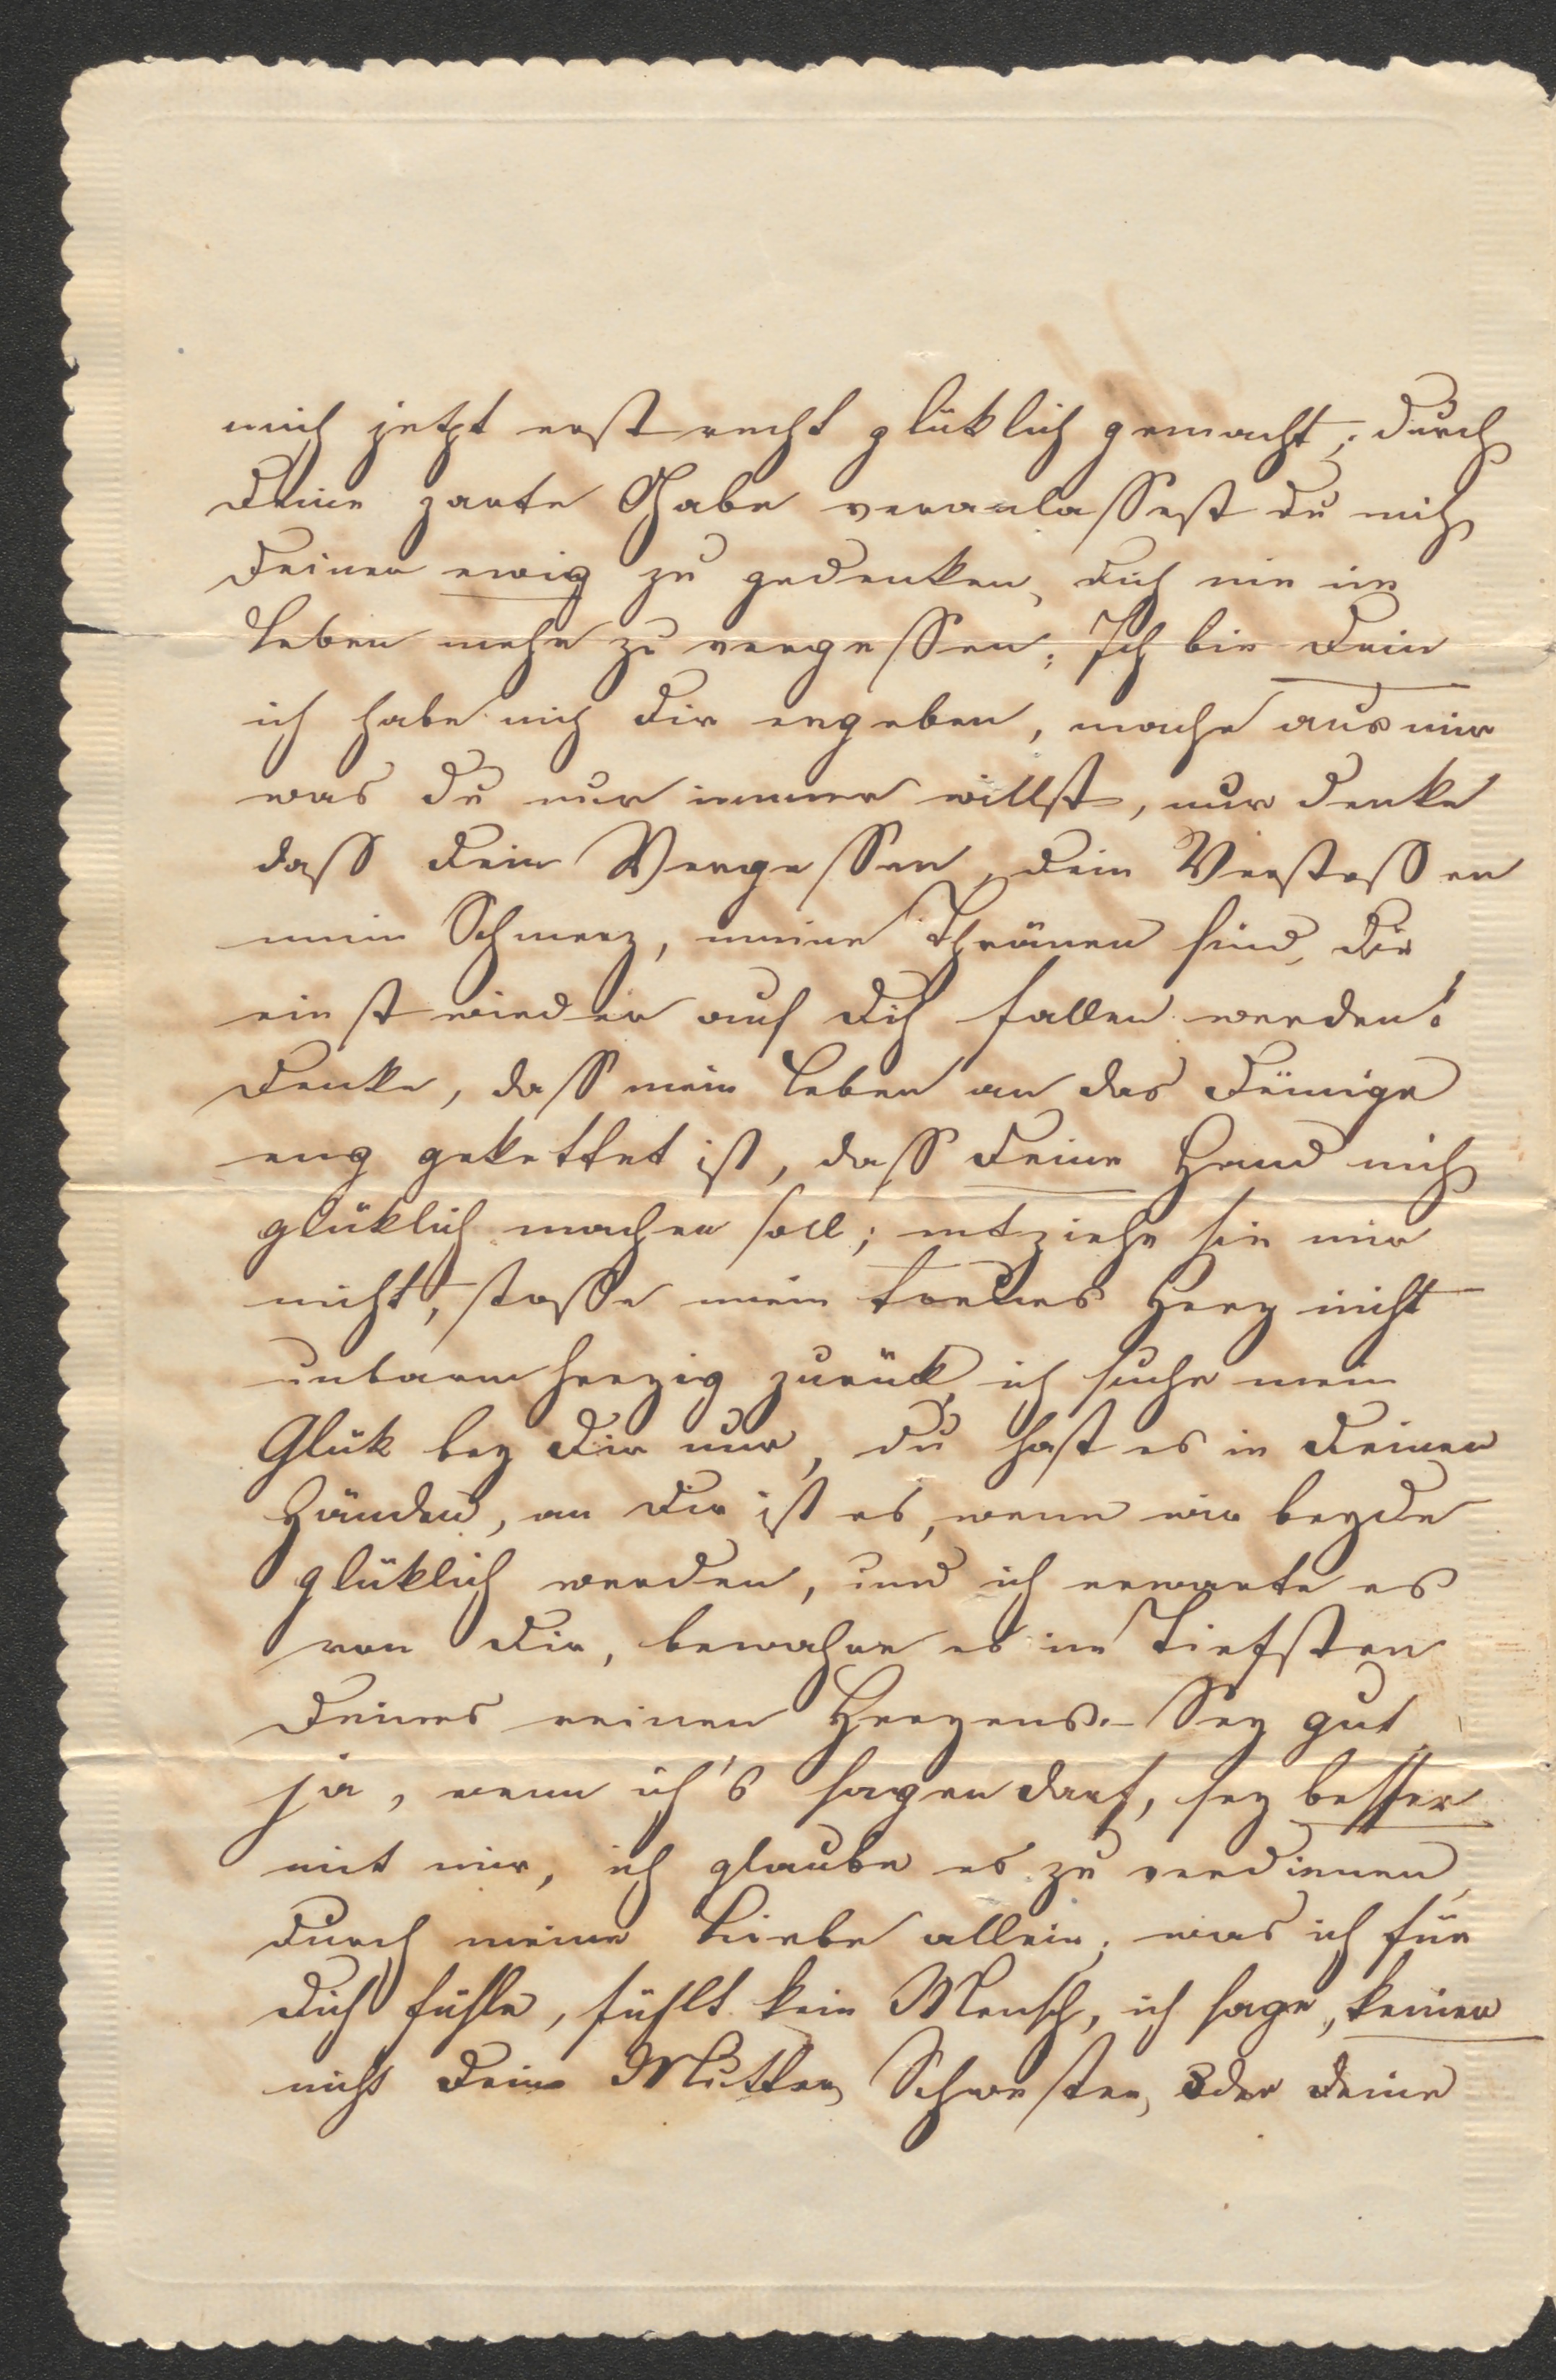 mich jetzt erst recht glüklich gemacht; durch
Deine zarte Gabe veranlassest du mich
Deiner ewig zu gedenken, dich nie im
Leben mehr zu vergessen; Ich bin Dein
ich habe mich Dir ergeben, mache aus mir
was du nur immer willst, nur denke
dass Dein Vergessen, Dein Verstossen
mein Schmerz, meine Thränen sind, die
einst wieder auf Dich fallen werden!
Denke, dass mein Leben an das Deinige
eng gekettet ist, dass Deine Hand mich
glüklich machen soll; entziehe sie mir
nicht, stosse mein treues Herz nicht
unbarmherzig zurük, ich suche mein
Glük bey Dir nur, du hast es in Deinen
Händen, an Dir ist es, wenn wir beyde
glüklich werden, und ich erwarte es
von Dir, bewahre es im Tiefsten
Deines reinen Herzens.– Sey gut
ja, wenn ich's sagen darf, sey besser
mit mir, ich glaube es zu verdienen
durch meine Liebe allein; was ich für
Dich fühle, fühlt kein Mensch, ich sage, keiner
nicht Deine Mutter, Schwester, oder Deine